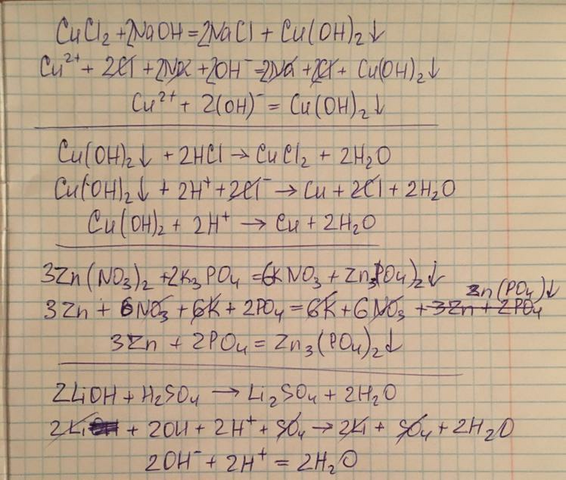 CuCl₂ + 2NaOH = 2NaCl + Cu(OH)₂↓
Cu²⁺ + 2Cl + 2Na + 2OH⁻ = 2Na + 2Cl + Cu(OH)₂↓
Cu²⁺ + 2(OH)⁻ = Cu(OH)₂↓
Cu(OH)₂↓ + 2HCl → CuCl₂ + 2H₂O
Cu(OH)₂↓ + 2H⁺ + 2Cl⁻ → Cu + 2Cl + 2H₂O
Cu(OH)₂ + 2H⁺ → Cu + 2H₂O
3Zn(NO₃)₂ + 2K₃PO₄ = 6KNO₃ + Zn₃(PO₄)₂↓
Zn(PO₄)↓
3Zn + 6NO₃ + 6K + 2PO₄ = 6K + 6NO₃ + 3Zn + 2PO₄
3Zn + 2PO₄ = Zn₃(PO₄)₂↓
2LiOH + H₂SO₄ → Li₂SO₄ + 2H₂O
2Li + 2OH + 2H⁺ + SO₄ → 2Li + SO₄ + 2H₂O
2OH⁻ + 2H⁺ = 2H₂O